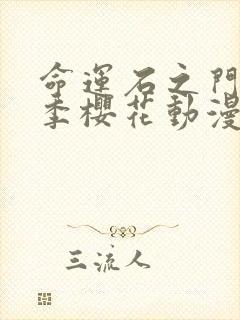 命運石之門
季櫻花動漫
三流人